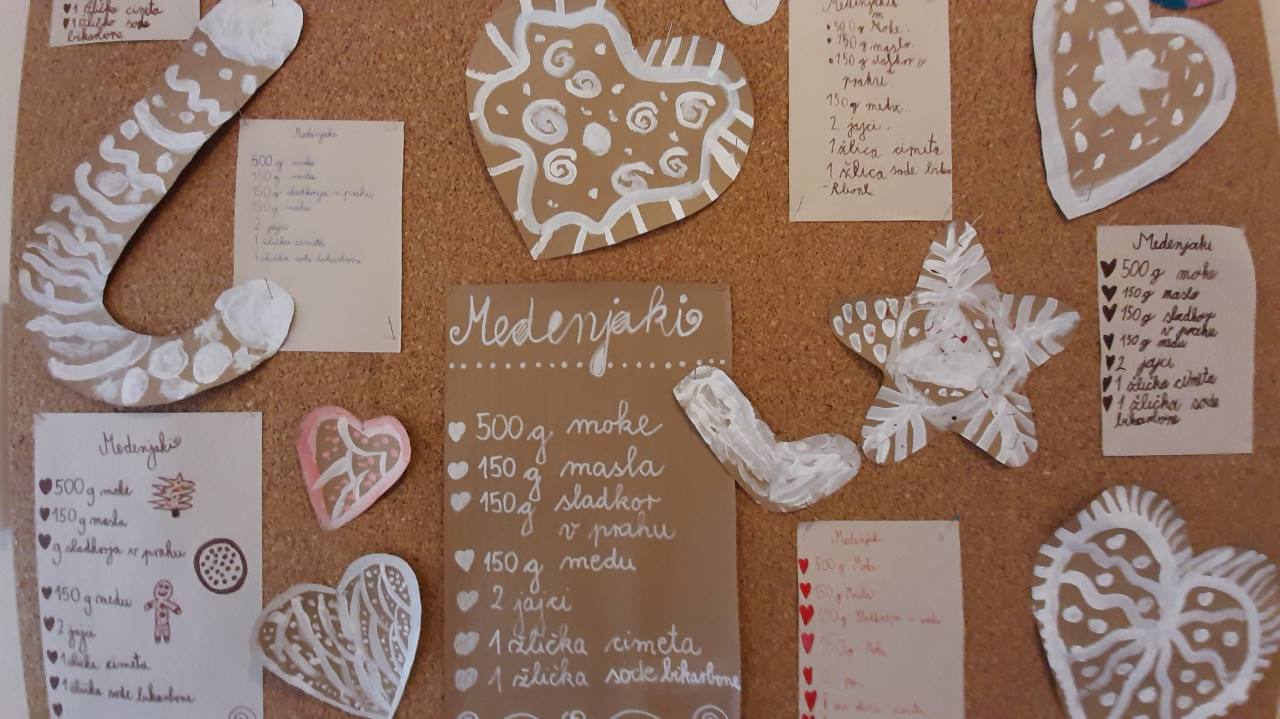 1 žlička cimeta
1 žličko sode
bikarbone
Medenjaki
500 g moke
150 g masla
150 g sladkorja v prahu
150 g medu
2 jajci
1 žlička cimeta
1 žlička sode bikarbone
Medenjaki
500 g Moke.
150 g maslo.
150 g sladkor
prahu
150 g medu.
2 jajci.
1 žlica cimeta
1 žlica sode
Medenjaki
500 g moke
150 g maslo
150 g sladkor
v prahu
150 g medu
2 jajci
1 žlička cimeta
1 žlička sode
bikarbone
Medenjaki
500 g moke
150 g masla
150 g sladkor
v prahu
150 g medu
2 jajci
1 žlička cimeta
1 žlička sode bikarbone
Medenjaki
500 g moke
150 g masla
g sladkorja v prahu
150 g medu
2 jajci
1 žlička cimeta
1 žlička sode bikarbone
Medenjaki
500 g Moke
150 g Masla
150 g
150 g
2